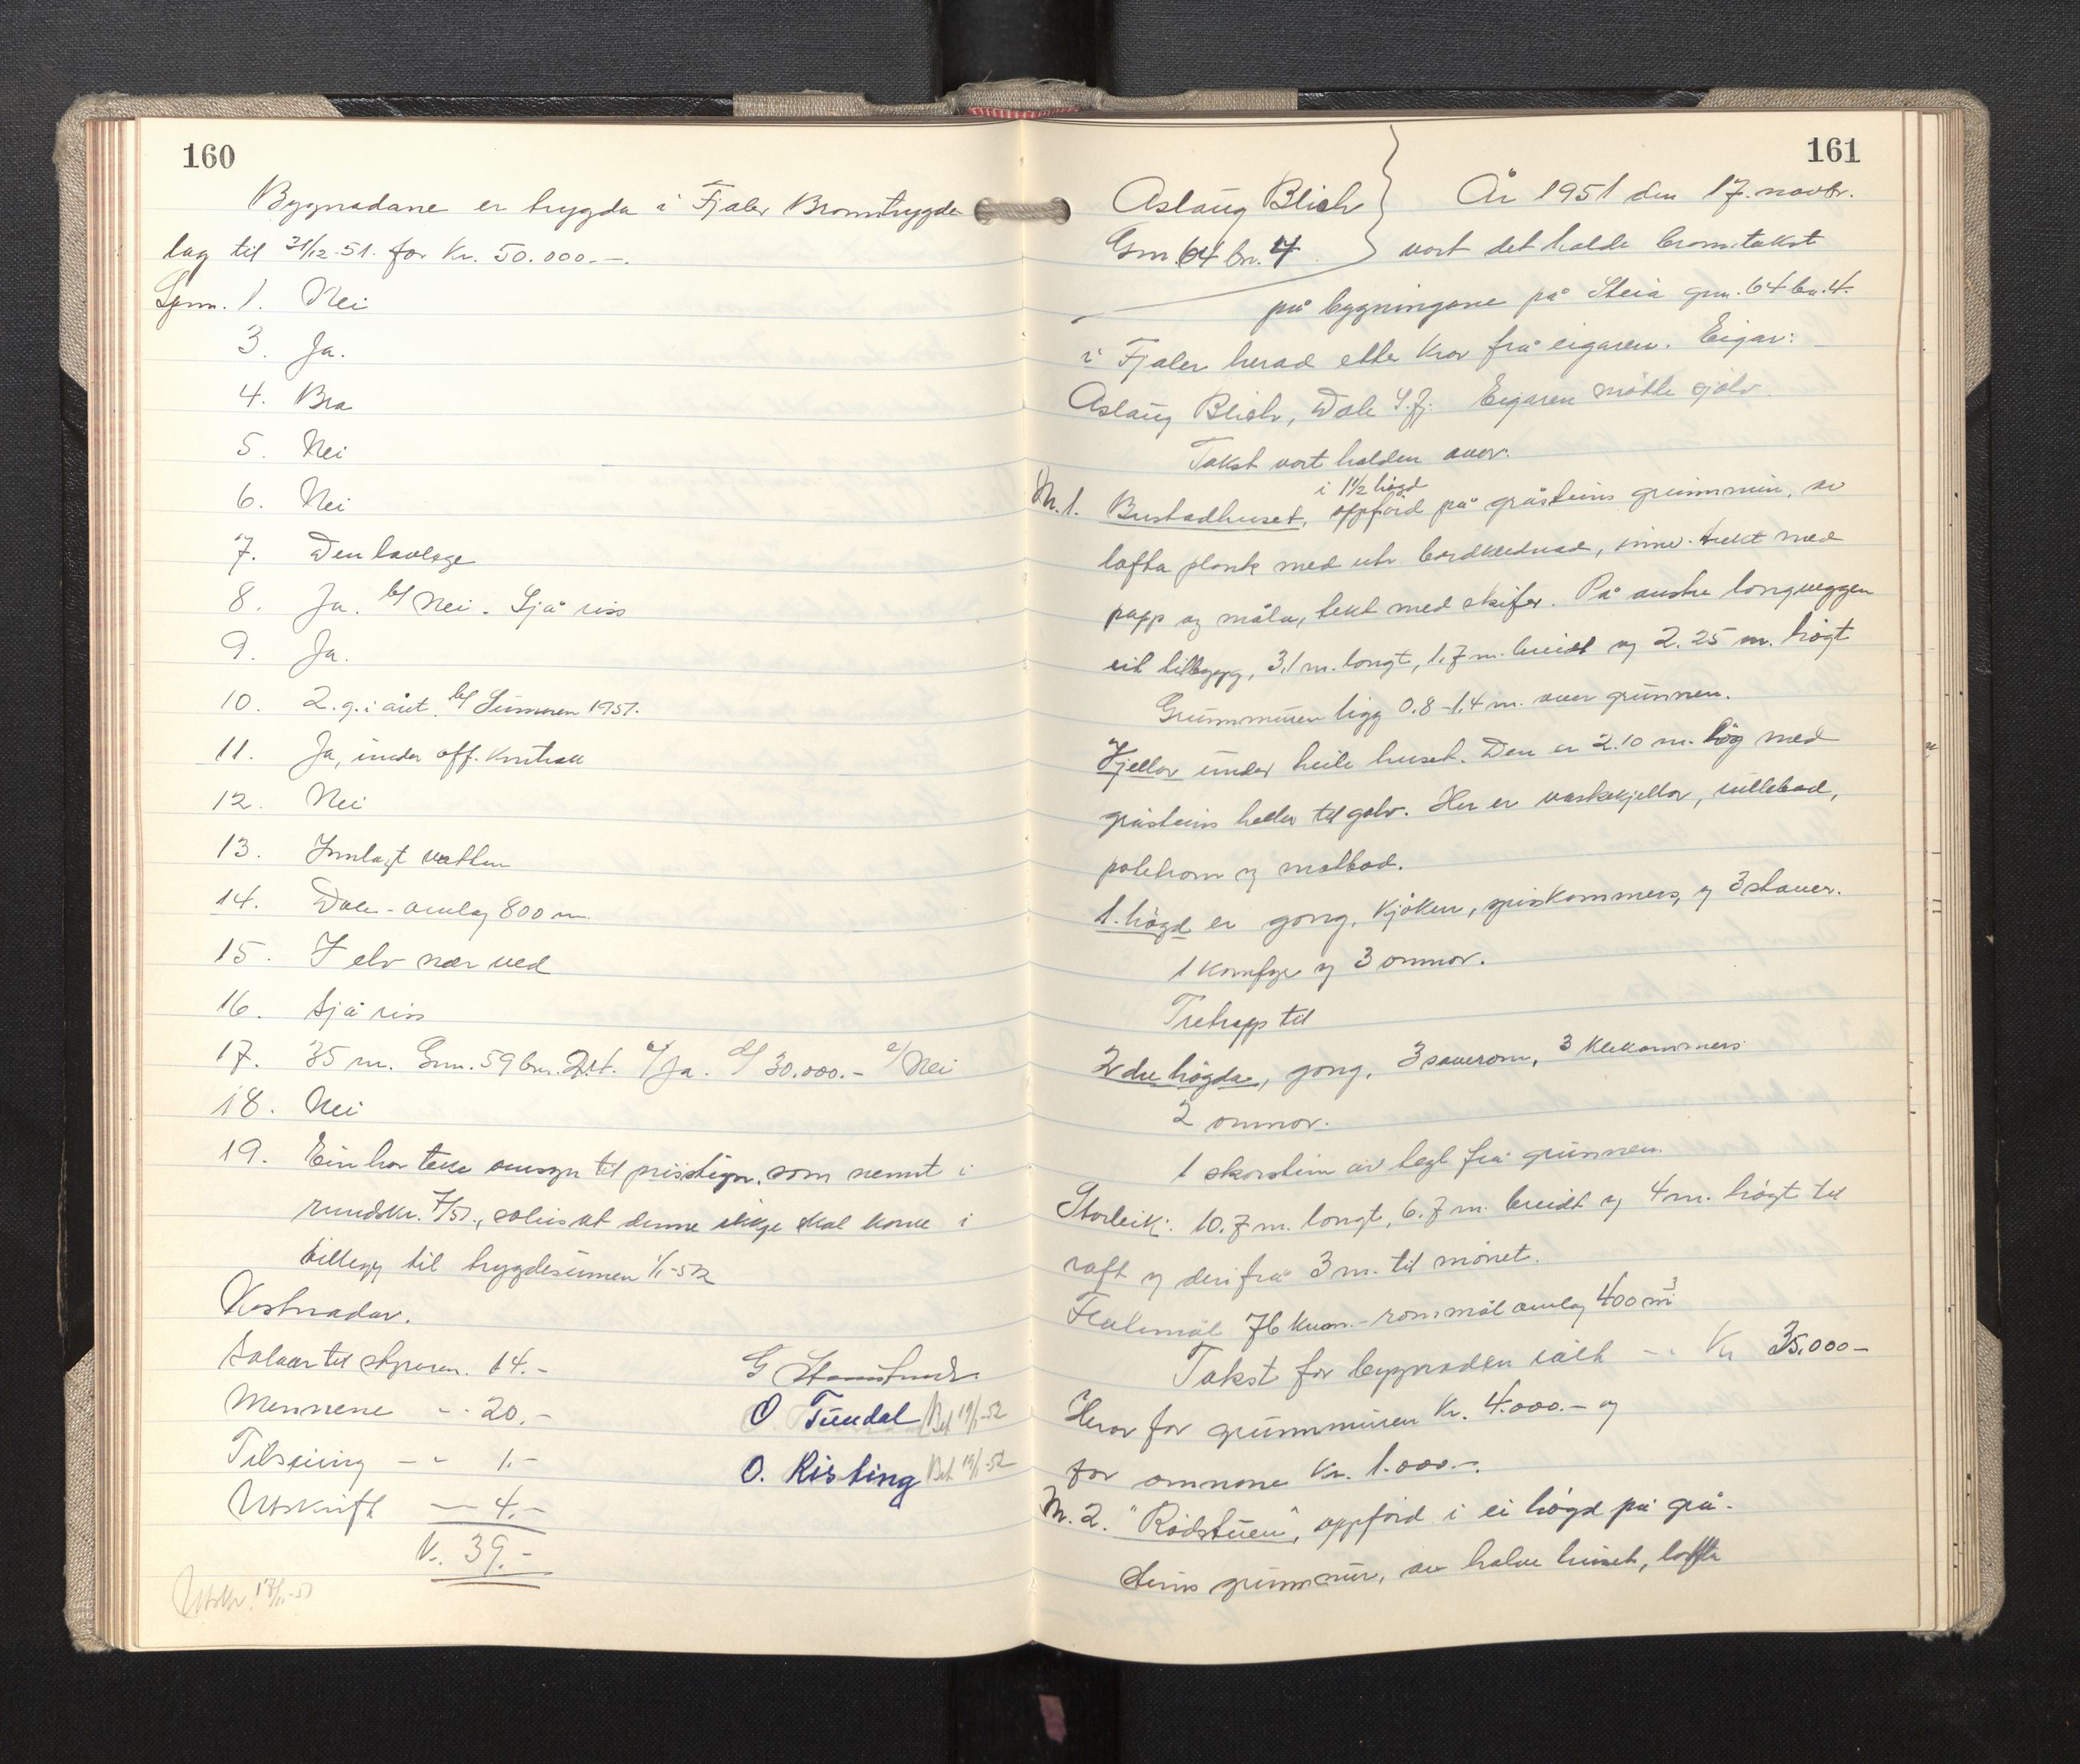 160
Bygnadane er trygda i Fjaler Branntrygde
lag til 31/12-51. for Kr. 50.000.-.
Spm. 1. Nei
3. Ja.
4. Bra
5. Nei
6. Nei
7. Den lovlege
8. Ja. b/ Nei. Sjå riss
9. Ja.
10. 2. g. i året. b/ Sumaren 1951.
11. Ja, under off. kontroll
12. Nei
13. Innlagt vatten
14. Dale - omlag 800 m.
15. I elv nær ved
16. Sjå riss
17. 35 m. Gnr. 59 bnr. 2 c/ Ja. d/ 30.000.- e/ Nei
18. Nei
19. Ein har teke omsyn til prisstign. som nemnt i
rundskr. 7/51., soleis at denne ikkje skal kome i
tillegg til trygdesumen 1/1-52
Kostnadar.
Salær til styraren. 14.-
Mennene - - 20.-
Tilseiing - - 1.-
Utskrift - 4.-
Kr. 39.-
G
O Tundal Bet 19/1-52
O. Risting Bet 19/1-52
Utskr. 17/11-51
161
Aslaug Blich
Gnr. 64 bnr. 4
År 1951 den 17. novbr.
vart det halde branntakst
på bygningane på Steia gnr. 64 bnr. 4.
i Fjaler herad etter krav frå eigaren. Eigar:
Aslaug Blich, Dale S.fj. Eigaren møtte sjølv.
Takst vart halden over:
i 1 1/2 høgd
M. 1. Bustadhuset, oppførd på gråsteins grunnmur, av
lafta plank med utv. bordklednad, innv. trekt med
papp og måla, tekt med skifer. På austre langveggen
eit tilbygg, 3,1 m. langt, 1,7 m. breidt og 2.25 m. høgt
Grunnmuren ligg 0.8-1,4 m. over grunnen.
Kjellar under heile huset. Den er 2.10 m. høg med
gråsteins heller til golv. Her er vaskekjellar, rullebod,
potetrom og matbod.
1. høgd er gang, kjøken, spiskammers, og 3 stover.
1 komfyr og 3 omnar.
Tretrapp til
2dre høgda, gang, 3 soverom, 3 klekammers
2 omnar.
1 skorstein av tegl frå grunnen.
Storleik: 10.7 m. langt, 6.7 m. breidt og 4 m. høgt til
raft og derifrå 3 m. til mønet.
Flatemål 76 kvm. - rommål omlag 400 m3
Takst for bygnaden ialt - - Kr 35.000-
Herav for grunnmuren Kr. 4.000.- og
for omnane Kr. 1.000.-.
M. 2. "Rødstuen", oppførd i ei høgd på grå-
steins grunnmur, av halve huset, lafta